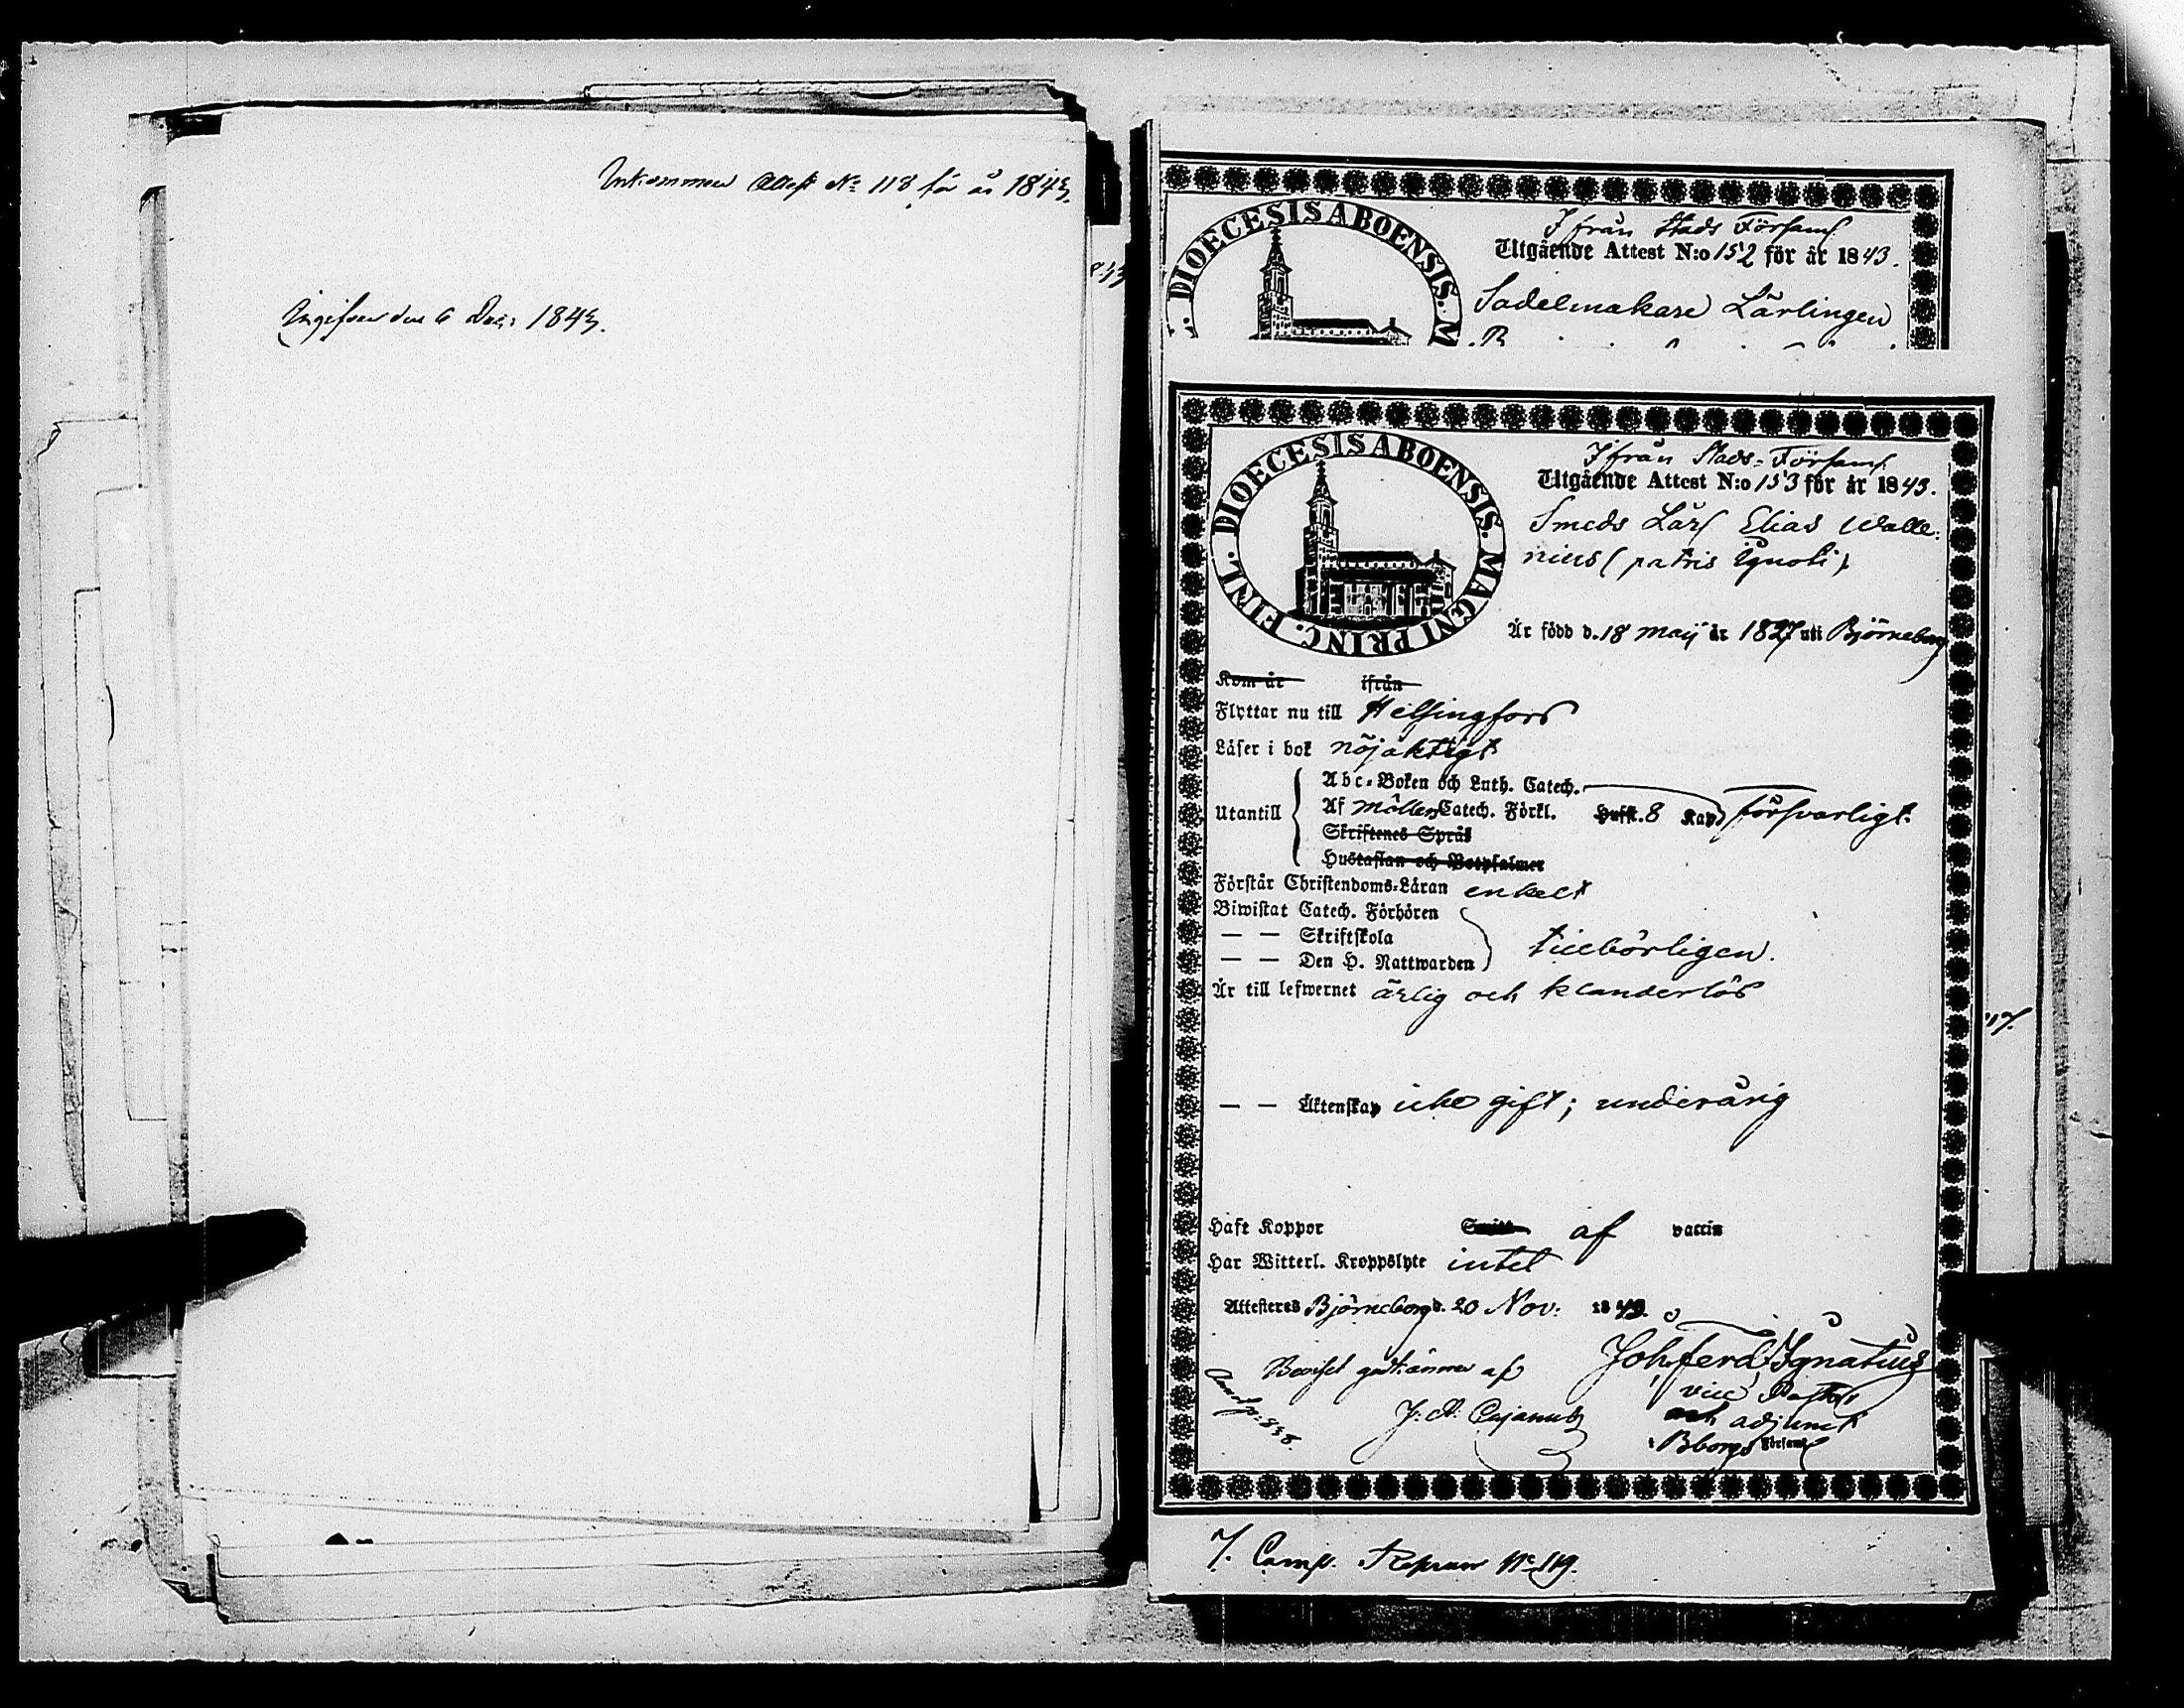 Inkommen Attest No 118 för år 1843.
Ingifven den 6 Dec: 1843.
DIOECESIS ABOENSIS. M
Ifrån Stads Församl
Utgående Attest N:o 152 för år 1843.
Sadelmakare Lärlingen
DIOECESIS ABOENSIS. MAGNI PRINC. FINL.
Ifrån Stads-Församl.
Utgående Attest N:o 153 för år 1843.
Smeds Lärl Elias Walle-
nius (patris Ignoti)
Är född d. 18 Maij år 1827 uti Björneborg
Kom år ifrån
Flyttar nu till Helsingfors
Läser i bok nöjaktigt
Utantill
Abc-Boken och Luth. Catech.
Af Möllers Catech. Förkl. Hufst. 8 Kap försvarligt.
Skriftenes Språk
Hustaflan och Botpsalmer
Förstår Christendoms-Läran enkelt
Biwistat Catech. Förhören
— — Skriftskola
— — Den H. Nattwarden tillbörligen.
Är till lefwernet ärlig och klanderlös
— — Äktenskap icke gift; underårig
Haft Koppor Smitt af vaccin
Har Witterl. Kroppslyte intet
Attesteras Björneborg d. 20 Nov: 1843.
Joh. Ferd. Ignatius
vice Pastor
och adjunct
i Bborgs Församl
Beviset godkännes af
J: A: Cajanus
7. Comp.